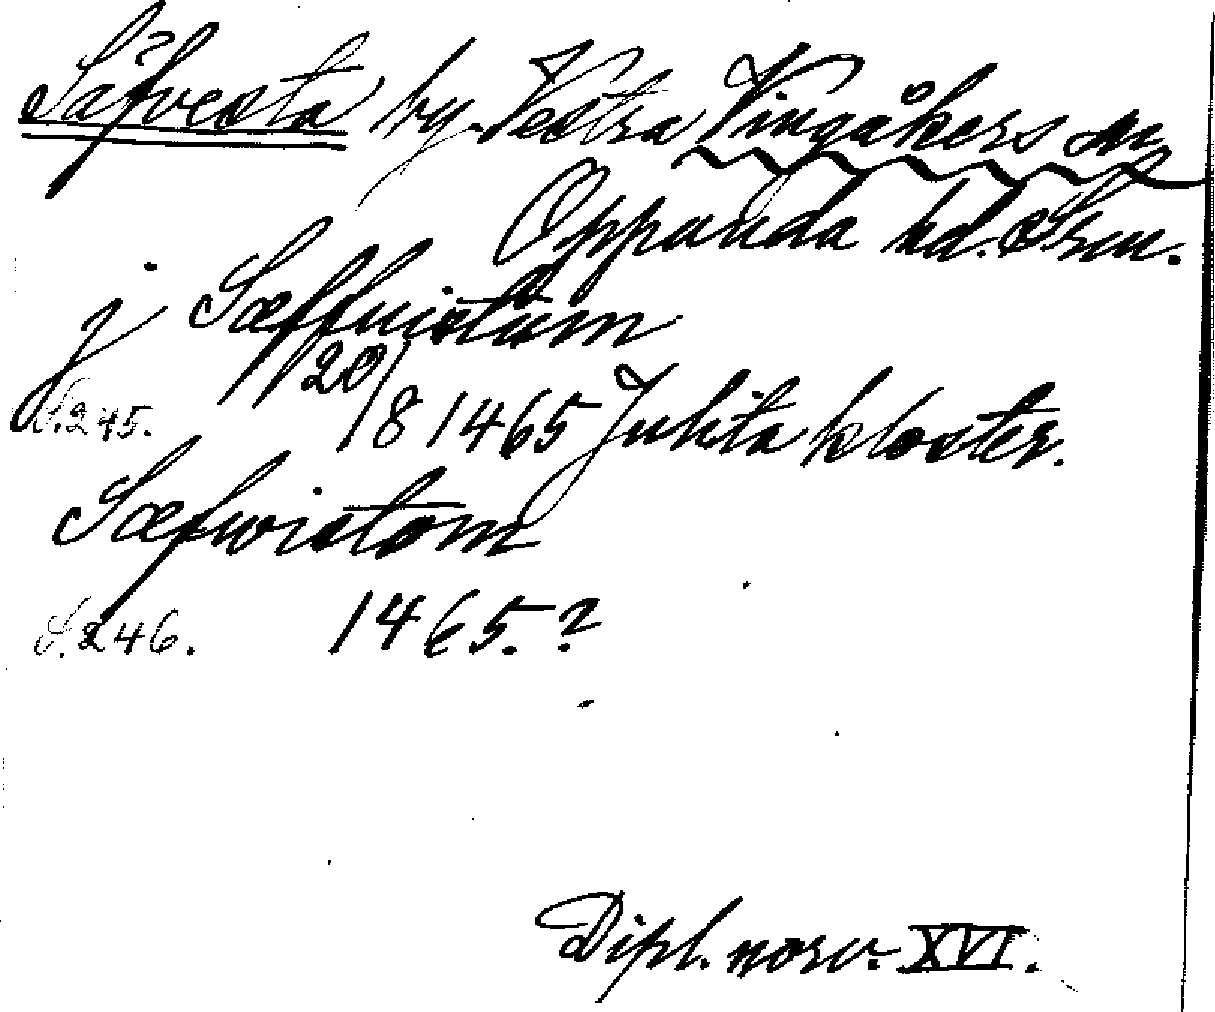 Säfvesta by. Vestra Vingåkers sn
Oppunda hd. Srm.
j Sæffuistum
S. 245. 20/8 1465 Julita kloster.
Sæfwistom
S. 246. 1465.?
Dipl. norv. XVI.